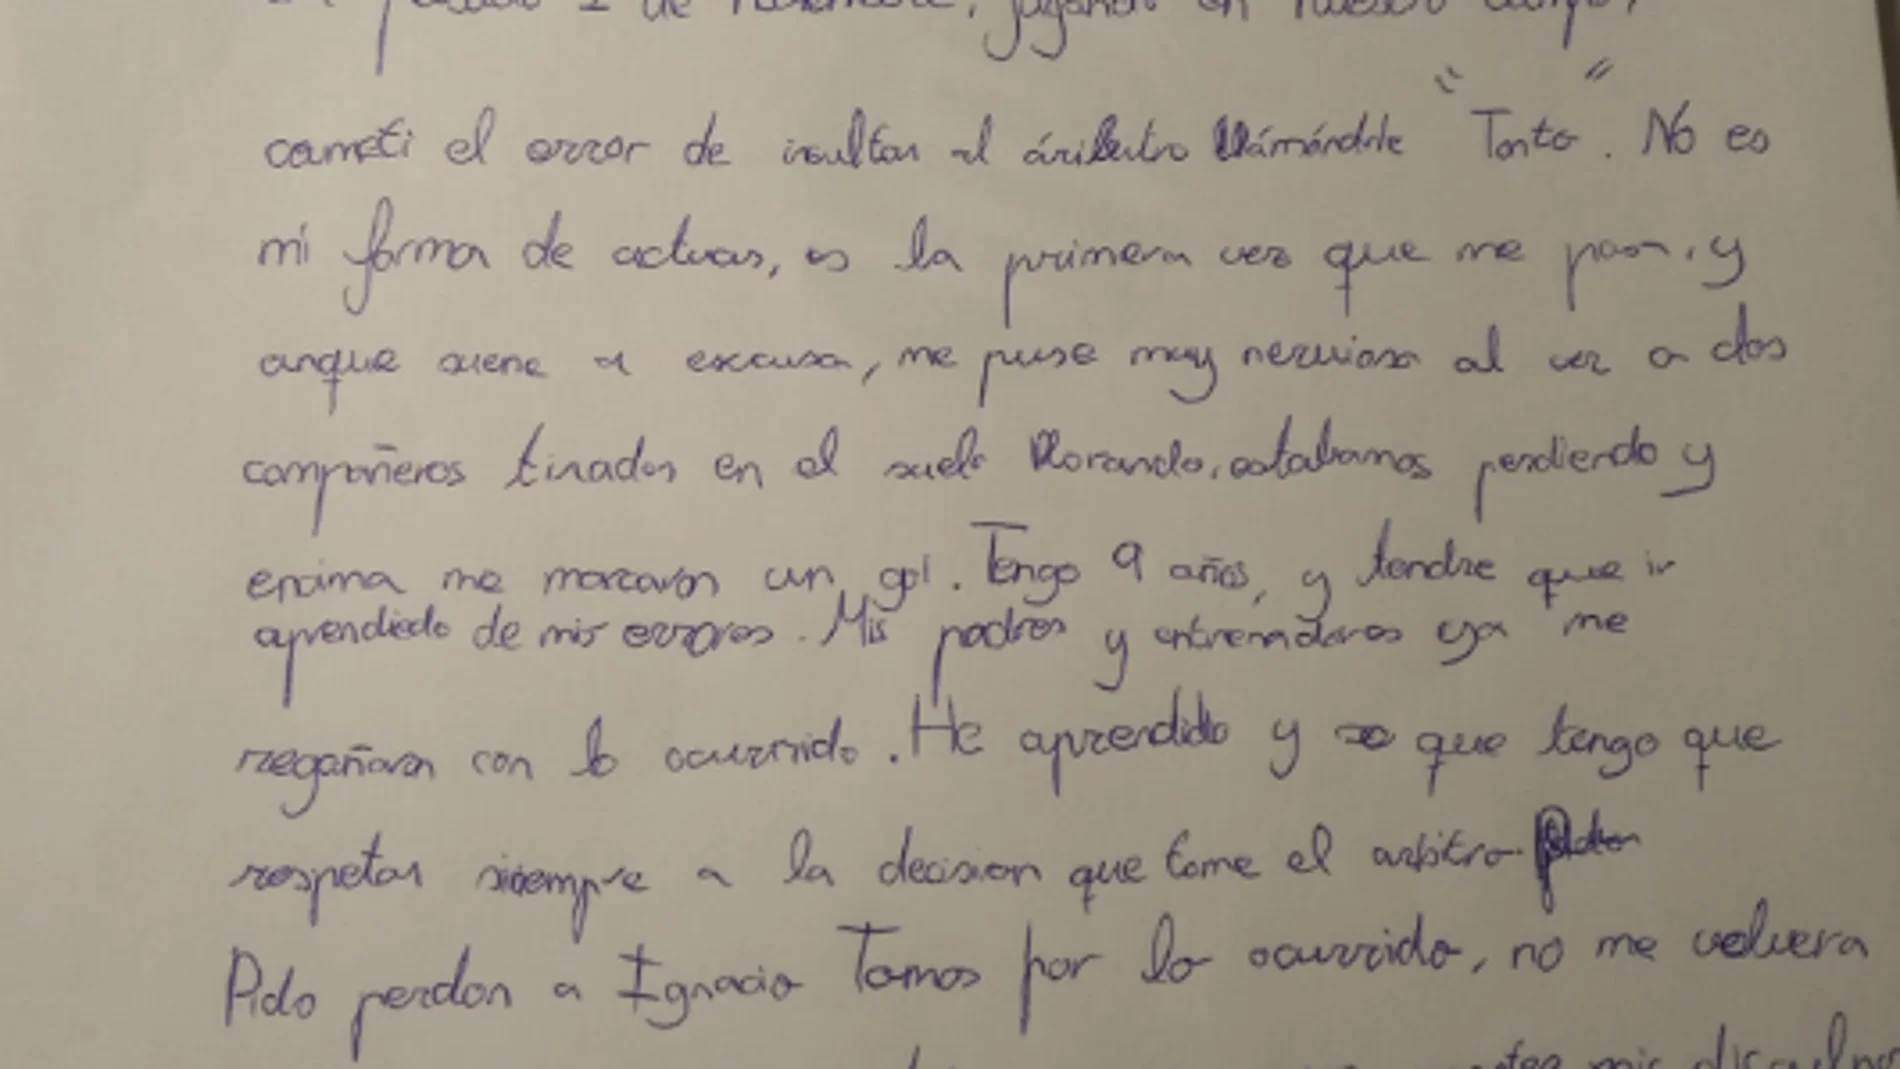 pasado 1 de Noviembre, jugando en nuestro campo,
cometi el error de insultar al áributro llámándole "Tonto". No es
mi forma de actuar, es la primera vez que me pasa, y
anque suene a excusa, me puse muy nerviosa al ver a dos
compañeros tirados en el suelo llorando, estabamos perdiendo y
encima me marcaron un gol. Tengo 9 años, y tendre que ir
aprendiedo de mis errores. Mis padres y entrenadores ya me
regañaron con lo ocurrido. He aprendido y se que tengo que
respetar siempre a la decision que tome el arbitro
Pido perdon a Ignacio Tamos por lo ocurrido, no me volvera
mis disculpas